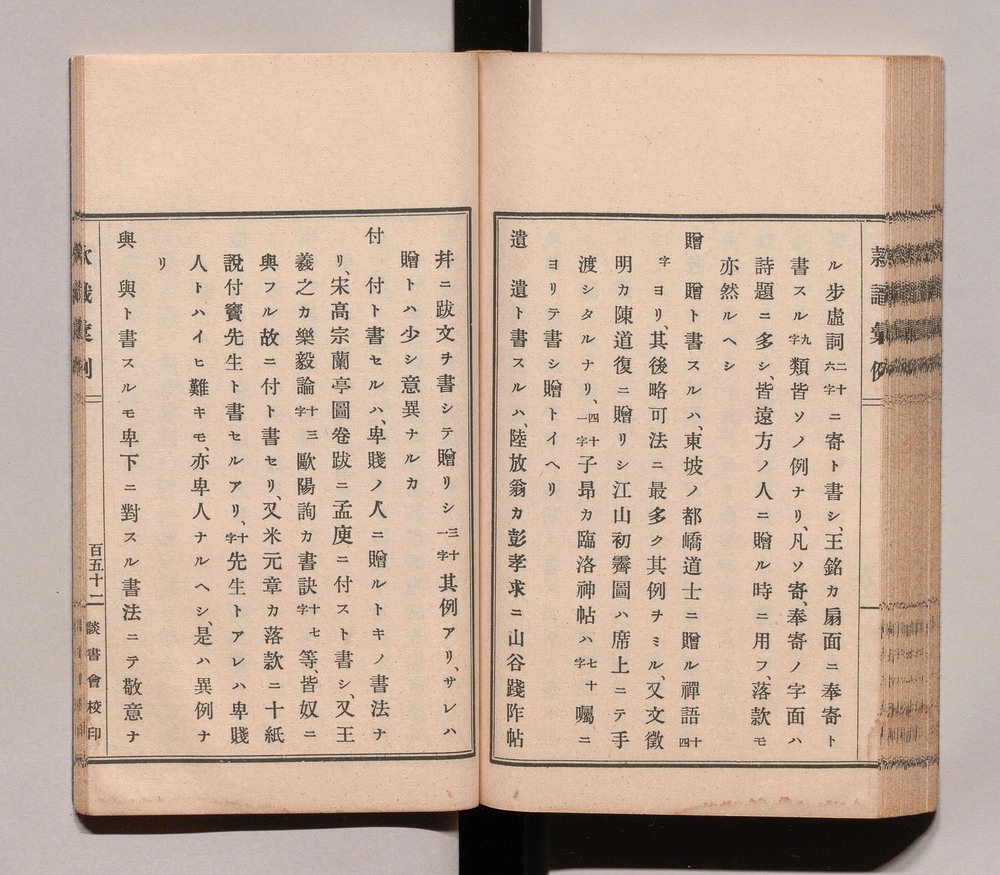 ル步虛詞二十六字ニ寄ト書シ、王銘カ扇面ニ奉寄ト
書スル九字類皆ソノ例ナリ、凡ソ寄、奉寄ノ字面ハ
詩題ニ多シ、皆遠方ノ人ニ贈ル時ニ用フ、落款モ
亦然ルヘシ
贈 贈ト書スルハ、東坡ノ都嶠道士ニ贈ル禪語十四
字ヨリ、其後略可法ニ最多ク其例ヲミル、又文徵
明カ陳道復ニ贈リシ江山初霽圖ハ席上ニテ手
渡シタルナリ、四十一字子昻カ臨洛神帖ハ七十字囑ニ
ヨリテ書シ贈トイヘリ
遺 遺ト書スルハ、陸放翁カ彭孝求ニ山谷踐阼帖
幷ニ跋文ヲ書シテ贈リシ三十一字其例アリ、サレハ
贈トハ少シ意異ナルカ
付 付ト書セルハ、卑賤ノ人ニ贈ルトキノ書法ナ
リ、宋高宗蘭亭圖卷跋ニ孟庾ニ付スト書シ、又王
羲之カ樂毅論十三字歐陽詢カ書訣十七字等、皆奴ニ
與フル故ニ付ト書セリ、又米元章カ落款ニ十紙
說付竇先生ト書セルアリ、十字先生トアレハ卑賤
人トハイヒ難キモ、亦卑人ナルヘシ、是ハ異例ナ
リ
與 與ト書スルモ卑下ニ對スル書法ニテ敬意ナ
百五十二
談書會校印